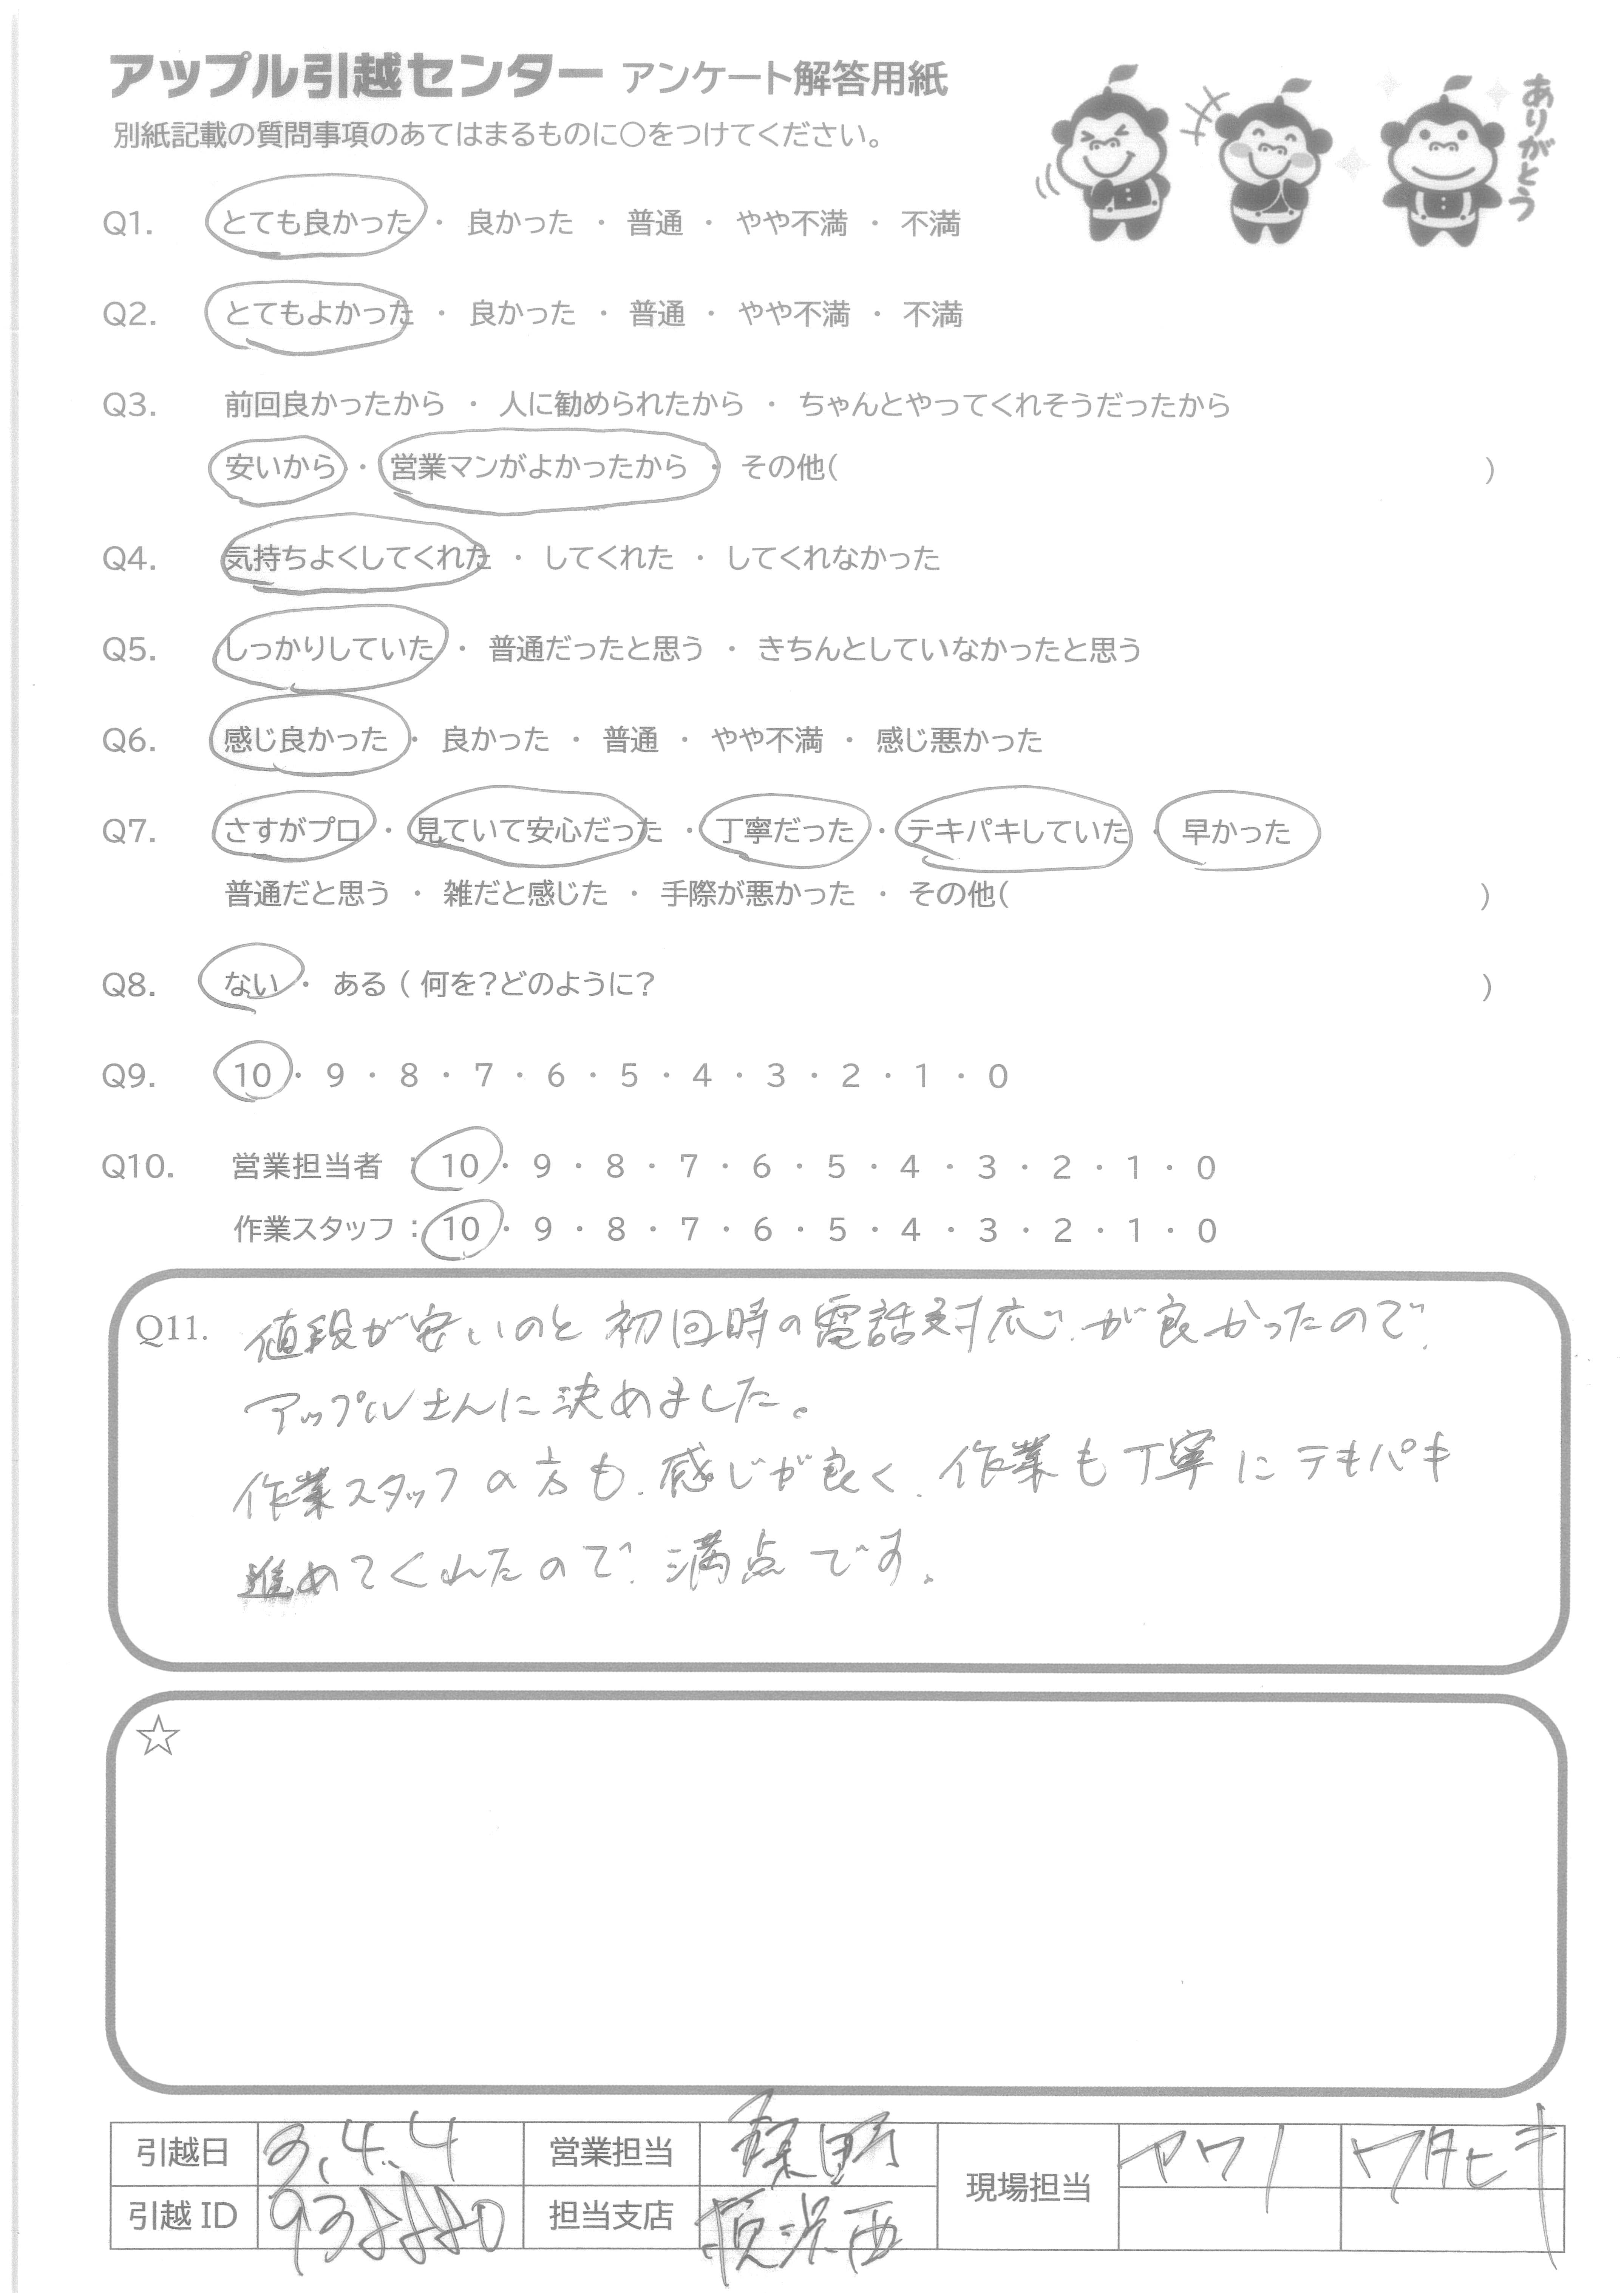 アップル引越センター アンケート解答用紙
別紙記載の質問事項のあてはまるものに○をつけてください。
ありがとう
Q1. とても良かった ・ 良かった ・ 普通 ・ やや不満 ・ 不満
Q2. とてもよかった ・ 良かった ・ 普通 ・ やや不満 ・ 不満
Q3. 前回良かったから ・ 人に勧められたから ・ ちゃんとやってくれそうだったから
安いから ・ 営業マンがよかったから ・ その他( )
Q4. 気持ちよくしてくれた ・ してくれた ・ してくれなかった
Q5. しっかりしていた ・ 普通だったと思う ・ きちんとしていなかったと思う
Q6. 感じ良かった ・ 良かった ・ 普通 ・ やや不満 ・ 感じ悪かった
Q7. さすがプロ ・ 見ていて安心だった ・ 丁寧だった ・ テキパキしていた ・ 早かった
普通だと思う ・ 雑だと感じた ・ 手際が悪かった ・ その他( )
Q8. ない ・ ある ( 何を?どのように? )
Q9. 10 ・ 9 ・ 8 ・ 7 ・ 6 ・ 5 ・ 4 ・ 3 ・ 2 ・ 1 ・ 0
Q10. 営業担当者 : 10 ・ 9 ・ 8 ・ 7 ・ 6 ・ 5 ・ 4 ・ 3 ・ 2 ・ 1 ・ 0
作業スタッフ : 10 ・ 9 ・ 8 ・ 7 ・ 6 ・ 5 ・ 4 ・ 3 ・ 2 ・ 1 ・ 0
Q11. 値段が安いのと初回時の電話対応が良かったので、
アップルさんに決めました。
作業スタッフの方も、感じが良く、作業も丁寧にテキパキ
進めてくれたので、満点です。
☆
引越日 3.4.4 営業担当 現場担当 アワノ ワタヒキ
引越 ID 938880 担当支店 横浜西